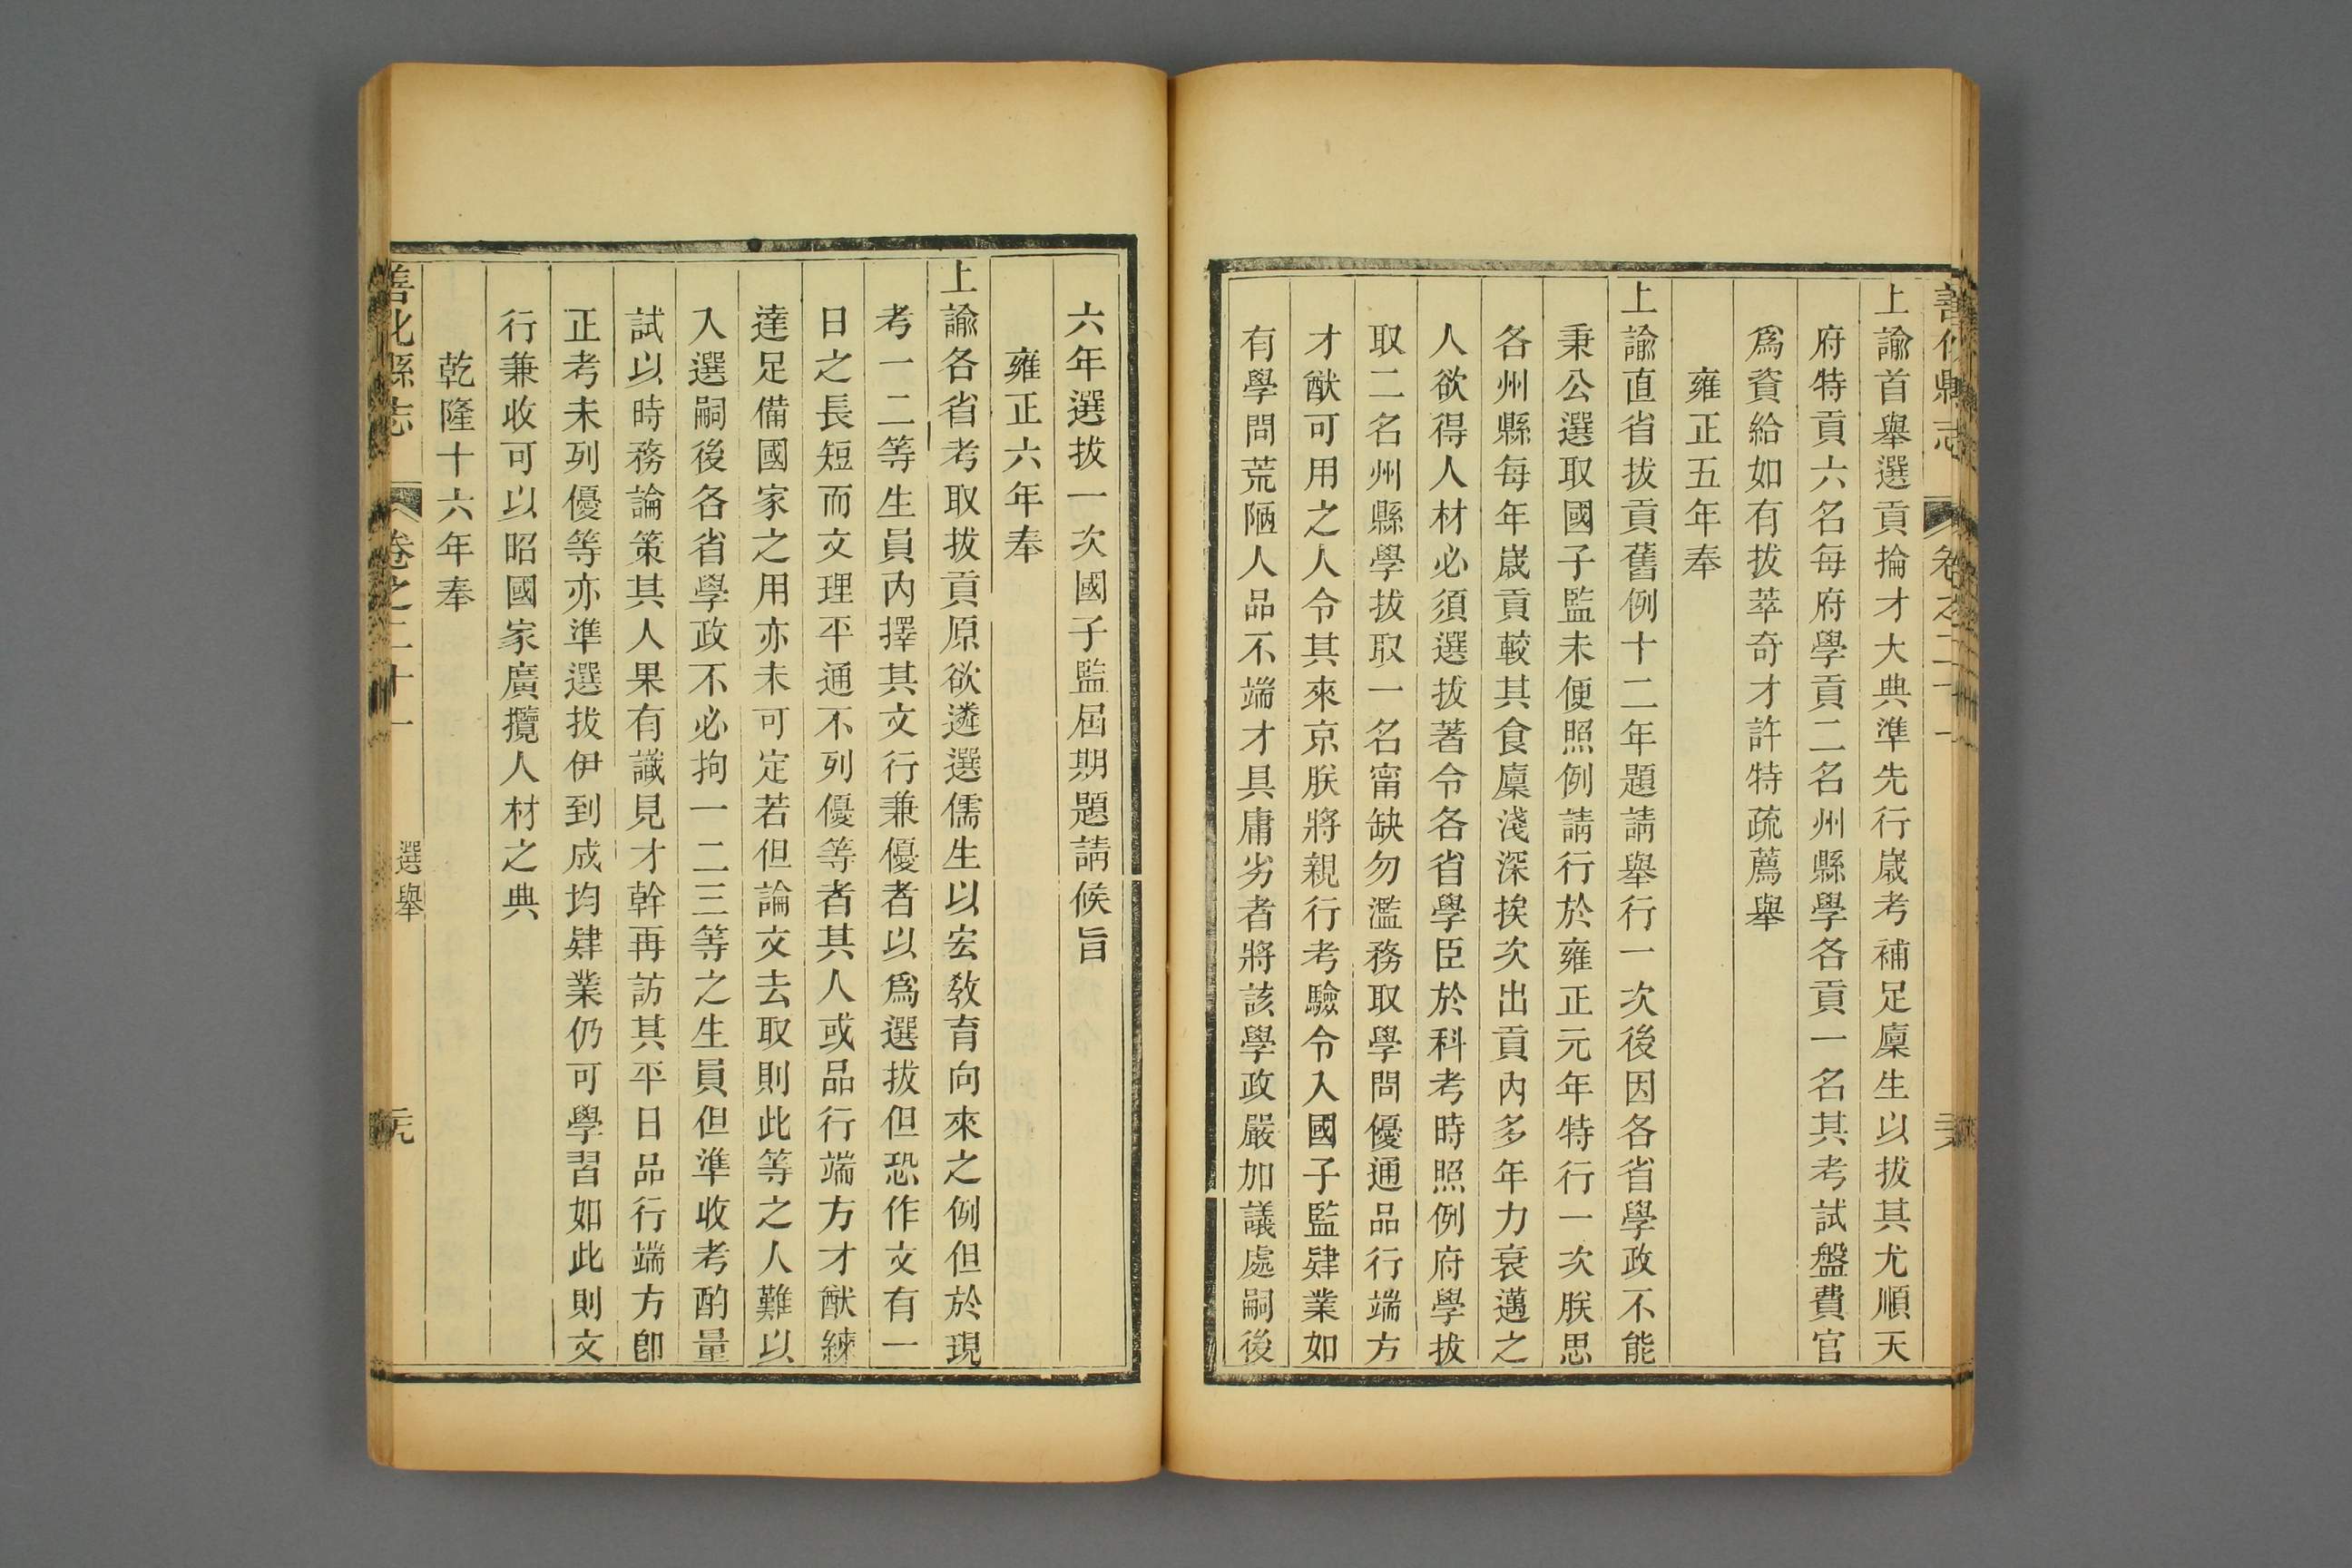 善化縣志 卷之二十一
上諭首舉選貢掄才大典準先行歲考補足廩生以拔其尤順天
府特貢六名每府學貢二名州縣學各貢一名其考試盤費官
爲資給如有拔萃奇才許特疏薦舉
雍正五年奉
上諭直省拔貢舊例十二年題請舉行一次後因各省學政不能
秉公選取國子監未便照例請行於雍正元年特行一次朕思
各州縣每年歲貢較其食廩淺深挨次出貢內多年力衰邁之
人欲得人材必須選拔著令各省學臣於科考時照例府學拔
取二名州縣學拔取一名甯缺勿濫務取學問優通品行端方
才猷可用之人令其來京朕將親行考驗令入國子監肄業如
有學問荒陋人品不端才具庸劣者將該學政嚴加議處嗣後
六年選拔一次國子監屆期題請候旨
雍正六年奉
上諭各省考取拔貢原欲遴選儒生以宏敎育向來之例但於現
考一二等生員內擇其文行兼優者以爲選拔但恐作文有一
日之長短而文理平通不列優等者其人或品行端方才猷練
達足備國家之用亦未可定若但論文去取則此等之人難以
入選嗣後各省學政不必拘一二三等之生員但準收考酌量
試以時務論策其人果有識見才幹再訪其平日品行端方卽
正考未列優等亦準選拔伊到成均肄業仍可學習如此則文
行兼收可以昭國家廣攬人材之典
乾隆十六年奉
善化縣志 卷之二十一 選舉